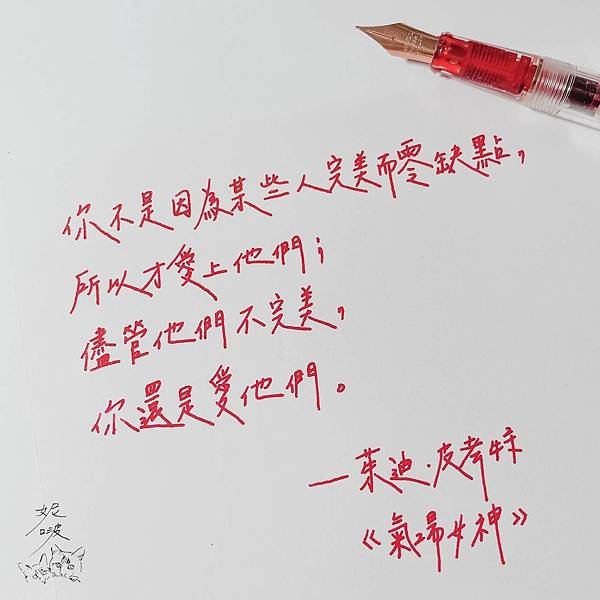 你不是因為某些人完美而零缺點，
所以才愛上他們；
儘管他們不完美，
你還是愛他們。
—茱迪·皮考特
《氣場女神》
妮
啵